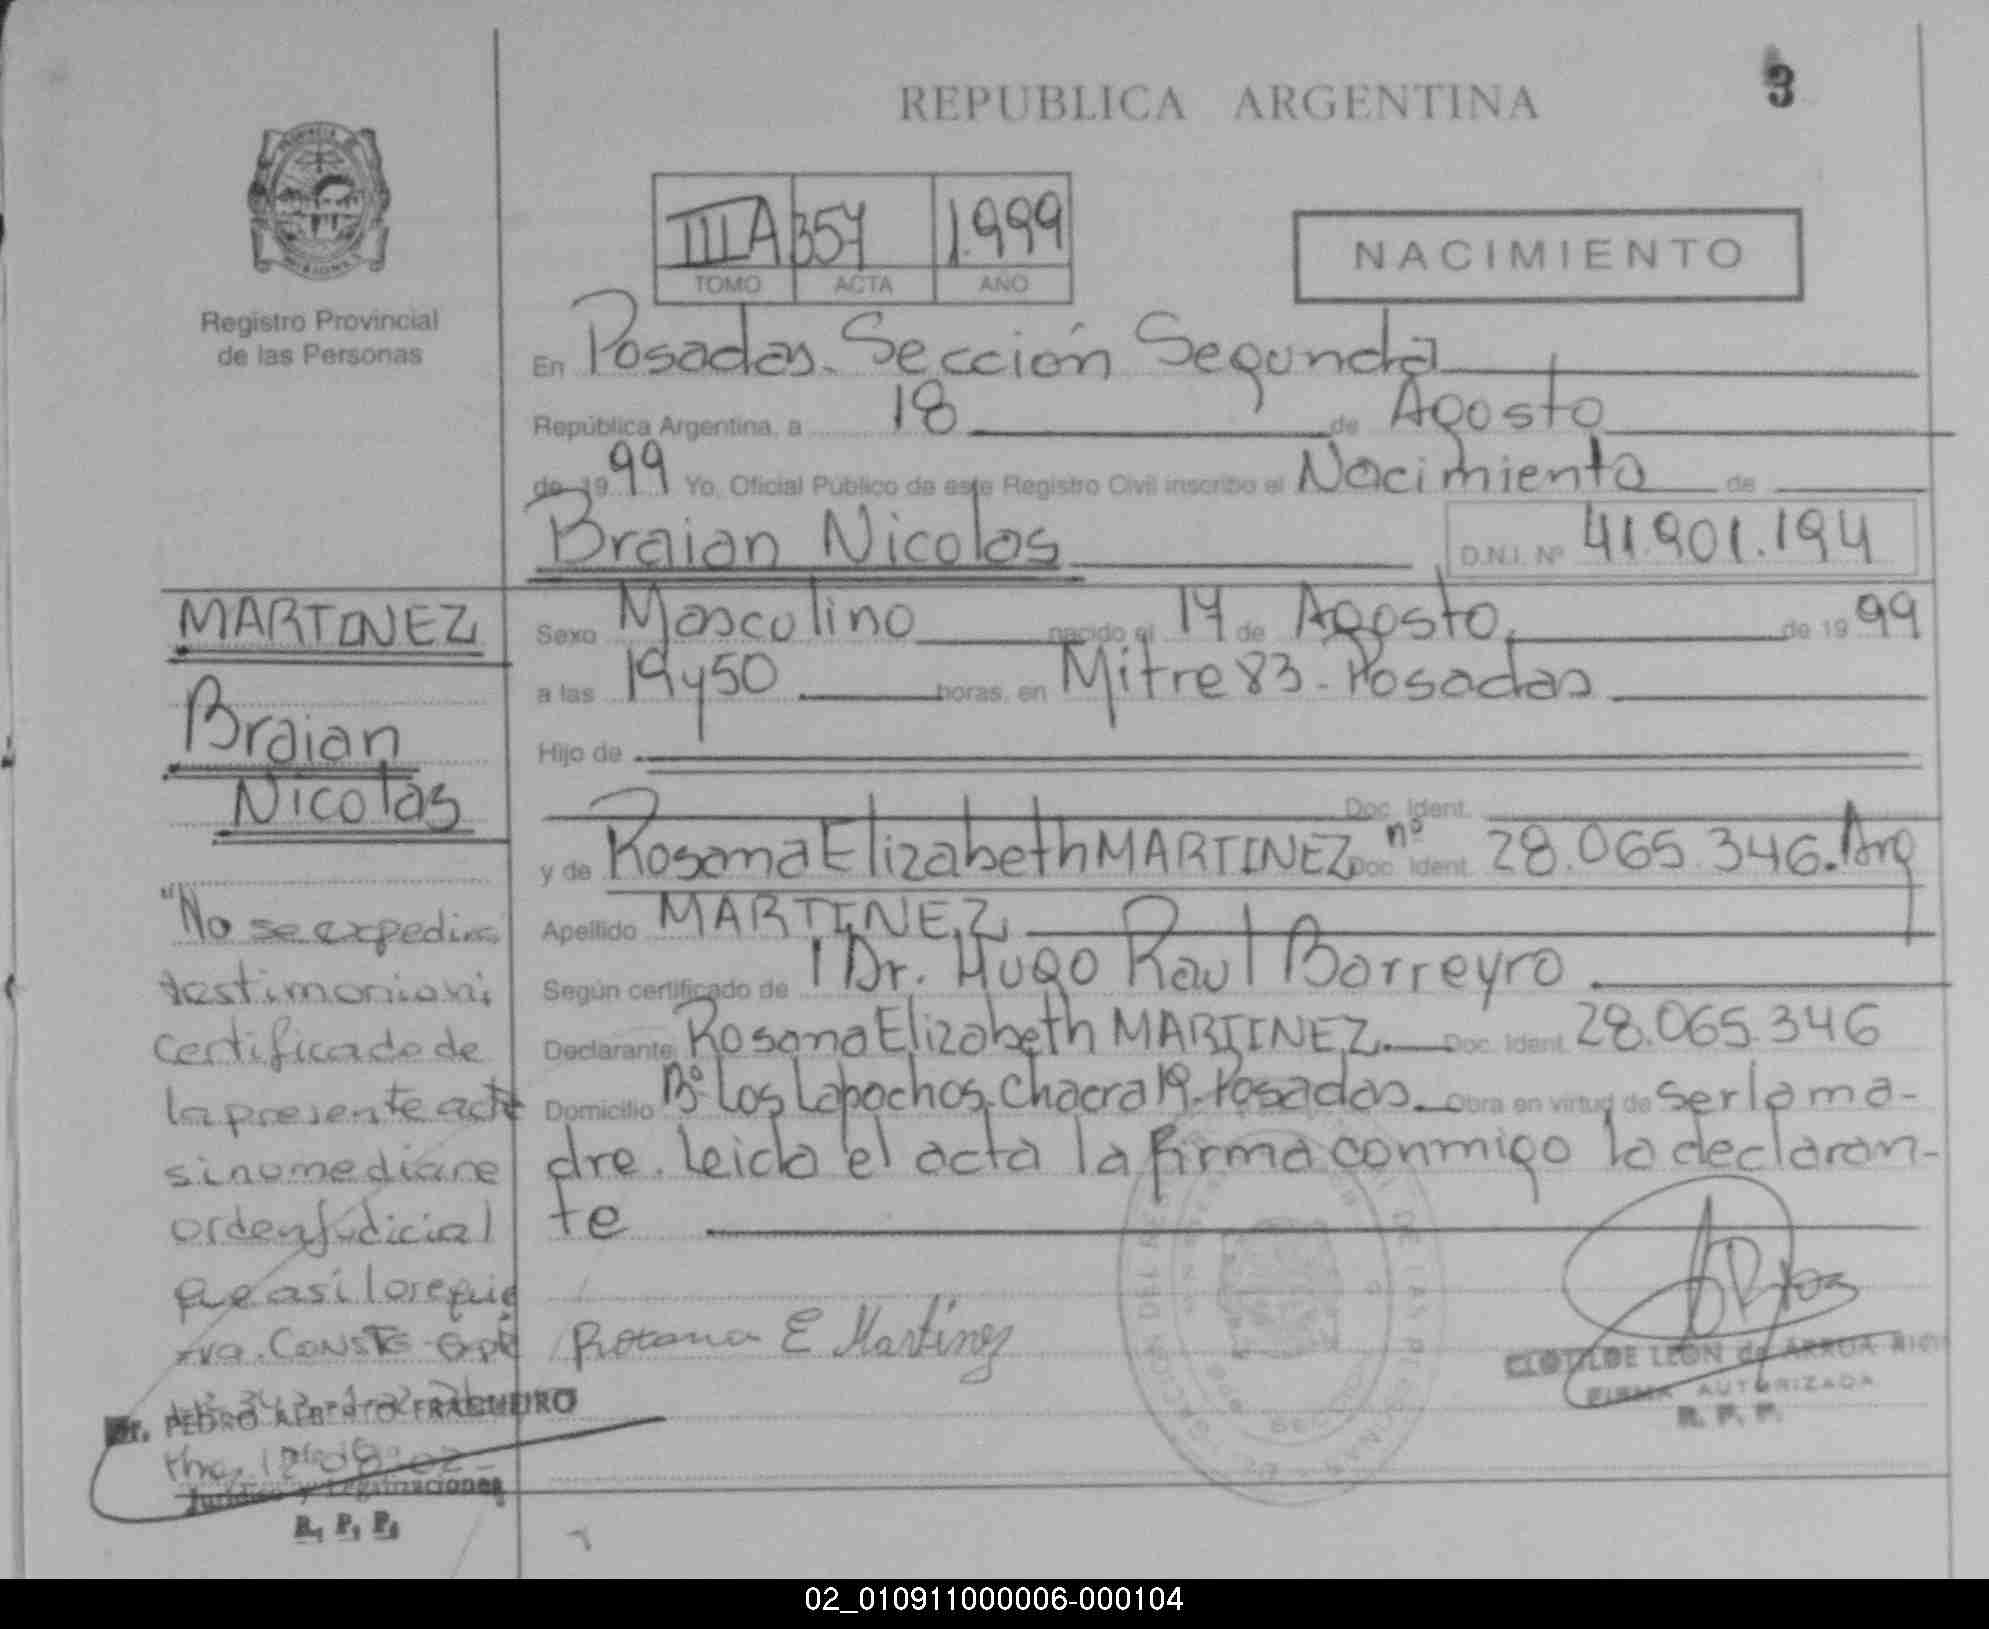 REPUBLICA ARGENTINA
3
IIIA 357 1.999
TOMO ACTA AÑO
NACIMIENTO
Registro Provincial
de las Personas
En Posadas. Sección Segunda
República Argentina, a 18 de Agosto
de 1999 Yo, Oficial Público de este Registro Civil inscribo el Nacimiento de
Braian Nicolas D.N.I. Nº 41.901.194
Sexo Masculino nacido el 17 de Agosto de 1999
a las 19 y 50 horas, en Mitre 83 - Posadas
Hijo de
Doc. Ident.
y de Rosana Elizabeth MARTINEZ Doc. Ident. nº 28.065.346. Arg
Apellido MARTINEZ
Según certificado de Dr. Hugo Raul Barreyro
Declarante Rosana Elizabeth MARTINEZ. Doc. Ident. 28.065.346
Domicilio Bº Los Lapachos. Chacra 19. Posadas. Obra en virtud de ser la ma-
dre. leida el acta la firma conmigo la declaran-
te
Rosana E Martinez
CLOTILDE LEON de ARRUA
FIRMA AUTORIZADA
R. P. P.
MARTINEZ
Braian
Nicolas
"No se expedira
testimonio ni
certificado de
la presente acta
sino mediane
orden judicial
que asi lo requie
CONSTE
Dr. PEDRO ALBERTO FRAGUEIRO
Jurídico y Legalizaciones
R. P. P.
02_010911000006-000104